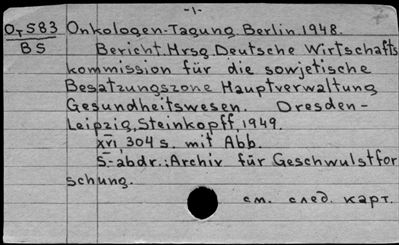 -1-
От583 Onkologen-Tagung Berlin 1948.
BS Bericht. Hrsg Deutsche Wirtschafts
kommission für die sowjetische
Besatzungszone Hauptverwaltung
Gesundheitswesen. Dresden-
Leipzig, Steinkopff, 1949.
XVI, 304 s. mit Abb.
S.-abdr.: Archiv für Geschwulstfor
schung.
см. след. карт.